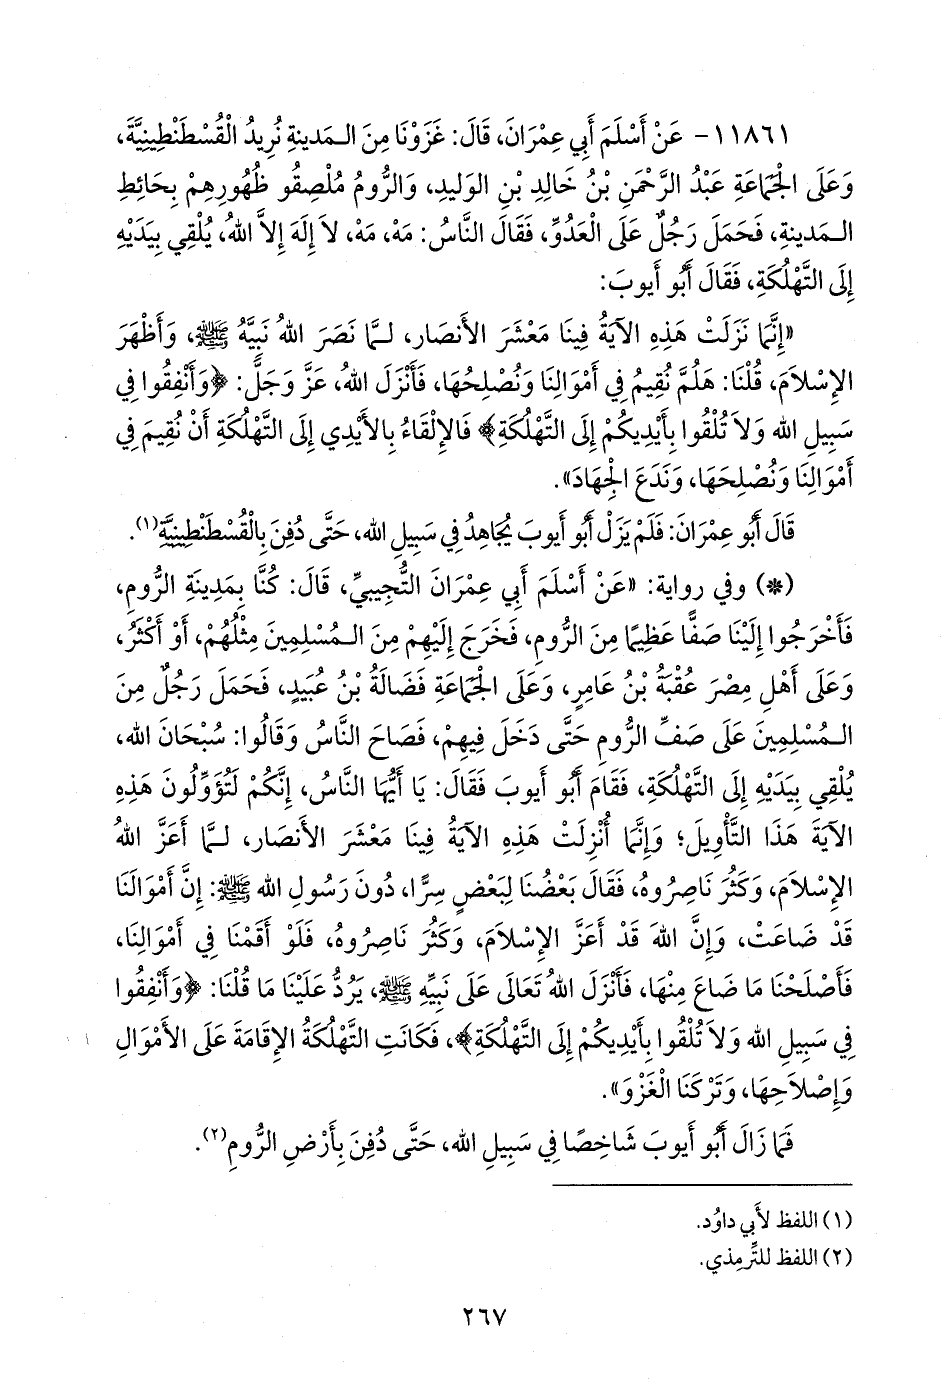 ١١٨٦١- عَنْ أَسْلَمَ أَبِي عِمْرَانَ، قَالَ: غَزَوْنَا مِنَ الـمَدينةِ نُرِيدُ الْقُسْطَنْطِينِيَّةَ،
وَعَلَى الْجَمَاعَةِ عَبْدُ الرَّحْمَنِ بْنُ خَالِدِ بْنِ الوَليدِ، وَالرُّومُ مُلْصِقُو ظُهُورِهِمْ بِحَائِطِ
الـمَدينةِ، فَحَمَلَ رَجُلٌ عَلَى الْعَدُوِّ، فَقَالَ النَّاسُ: مَهْ، مَهْ، لاَ إِلَهَ إِلاَّ اللهُ، يُلْقِي بِيَدَيْهِ
إِلَى التَّهْلُكَةِ، فَقَالَ أَبُو أَيوبَ:
«إِنَّمَا نَزَلَتْ هَذِهِ الآيَةُ فِينَا مَعْشَرَ الأَنصَارِ، لـمَّا نَصَرَ اللهُ نَبِيَّهُ ﷺ، وَأَظْهَرَ
الإِسْلاَمَ، قُلْنَا: هَلُمَّ نُقِيمُ فِي أَمْوَالِنَا وَنُصْلِحُهَا، فَأَنْزَلَ اللهُ، عَزَّ وَجَلَّ: ﴿وَأَنْفِقُوا فِي
سَبِيلِ الله وَلاَ تُلْقُوا بِأَيْدِيكُمْ إِلَى التَّهْلُكَةِ﴾ فَالإِلْقَاءُ بِالأَيْدِي إِلَى التَّهْلُكَةِ أَنْ نُقِيمَ فِي
أَمْوَالِنَا وَنُصْلِحَهَا، وَنَدَعَ الْجِهَادَ».
قَالَ أَبُو عِمْرَانَ: فَلَمْ يَزَلْ أَبُو أَيوبَ يُجَاهِدُ فِي سَبِيلِ الله، حَتَّى دُفِنَ بِالْقُسْطَنْطِينِيَّةِ(١).
(*) وفي رواية: «عَنْ أَسْلَمَ أَبِي عِمْرَانَ التُّجِيبيِّ، قَالَ: كُنَّا بِمَدِينَةِ الرُّومِ،
فَأَخْرَجُوا إِلَيْنَا صَفًّا عَظِيمًا مِنَ الرُّومِ، فَخَرَجَ إِلَيْهِمْ مِنَ الـمُسْلِمِينَ مِثْلُهُمْ، أَوْ أَكْثَرُ،
وَعَلَى أَهْلِ مِصْرَ عُقْبَةُ بْنُ عَامِرٍ، وَعَلَى الْجَمَاعَةِ فَضَالَةُ بْنُ عُبَيدٍ، فَحَمَلَ رَجُلٌ مِنَ
الـمُسْلِمِينَ عَلَى صَفِّ الرُّومِ حَتَّى دَخَلَ فِيهِمْ، فَصَاحَ النَّاسُ وَقَالُوا: سُبْحَانَ الله،
يُلْقِي بِيَدَيْهِ إِلَى التَّهْلُكَةِ، فَقَامَ أَبُو أَيوبَ فَقَالَ: يَا أَيُّهَا النَّاسُ، إِنَّكُمْ لَتُؤَوِّلُونَ هَذِهِ
الآيَةَ هَذَا التَّأْوِيلَ؛ وَإِنَّمَا أُنْزِلَتْ هَذِهِ الآيَةُ فِينَا مَعْشَرَ الأَنصَارِ، لـمَّا أَعَزَّ اللهُ
الإِسْلاَمَ، وَكَثُرَ نَاصِرُوهُ، فَقَالَ بَعْضُنَا لِبَعْضٍ سِرًّا، دُونَ رَسُولِ الله ﷺ: إِنَّ أَمْوَالَنَا
قَدْ ضَاعَتْ، وَإِنَّ اللهَ قَدْ أَعَزَّ الإِسْلاَمَ، وَكَثُرَ نَاصِرُوهُ، فَلَوْ أَقَمْنَا فِي أَمْوَالِنَا،
فَأَصْلَحْنَا مَا ضَاعَ مِنْهَا، فَأَنْزَلَ اللهُ تَعَالَى عَلَى نَبِيِّهِ ﷺ، يَرُدُّ عَلَيْنَا مَا قُلْنَا: ﴿وَأَنْفِقُوا
فِي سَبِيلِ الله وَلاَ تُلْقُوا بِأَيْدِيكُمْ إِلَى التَّهْلُكَةِ﴾، فَكَانَتِ التَّهْلُكَةُ الإِقَامَةَ عَلَى الأَمْوَالِ
وَإِصْلاَحِهَا، وَتَرْكَنَا الْغَزْوَ».
فَمَا زَالَ أَبُو أَيوبَ شَاخِصًا فِي سَبِيلِ الله، حَتَّى دُفِنَ بِأَرْضِ الرُّومِ(٢).
(١) اللفظ لأَبي داوُد.
(٢) اللفظ للتِّرمِذي.
٢٦٧